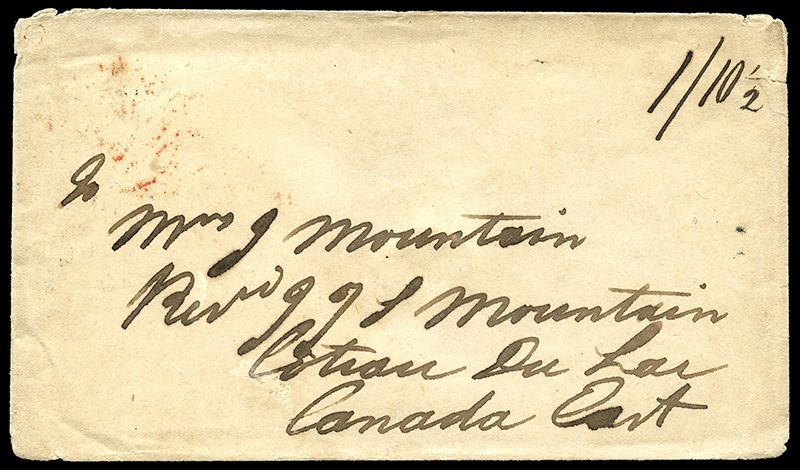 1/10 1/2
To
Mrs J Mountain
Revd J J S Mountain
Coteau Du Lac
Canada East